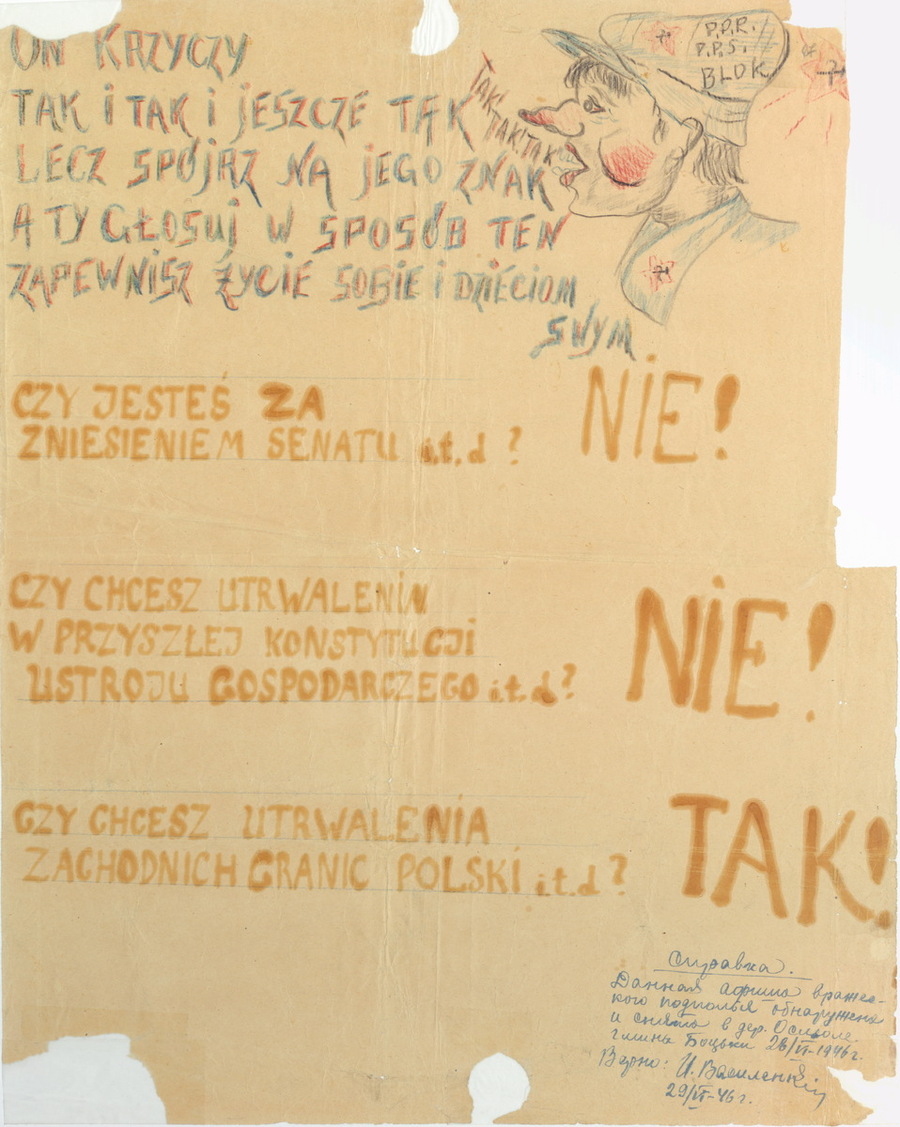 ON KRZYCZY
TAK i TAK i JESZCZE TAK
LECZ SPÓJRZ NA JEGO ZNAK
A TY GŁOSUJ W SPOSÓB TEN
ZAPEWNISZ ŻYCIE SOBIE i DZIECIOM
SWYM
TAK! TAK! TAK! TAK
P.P.R.
P.P.S.
BLOK
CZY JESTEŚ ZA
ZNIESIENIEM SENATU i.t.d ?
NIE!
CZY CHCESZ UTRWALENIA
W PRZYSZŁEJ KONSTYTUCJI
USTROJU GOSPODARCZEGO i.t.d?
NIE!
CZY CHCESZ UTRWALENIA
ZACHODNICH GRANIC POLSKI i.t.d?
TAK!
Справка.
Данная афиша вражес-
кого подполья обнаружена
и снята в дер. Осиполе
гмины Боцьки 26/VI-1946г.
Верно: И. Василенко
29/VI-46г.